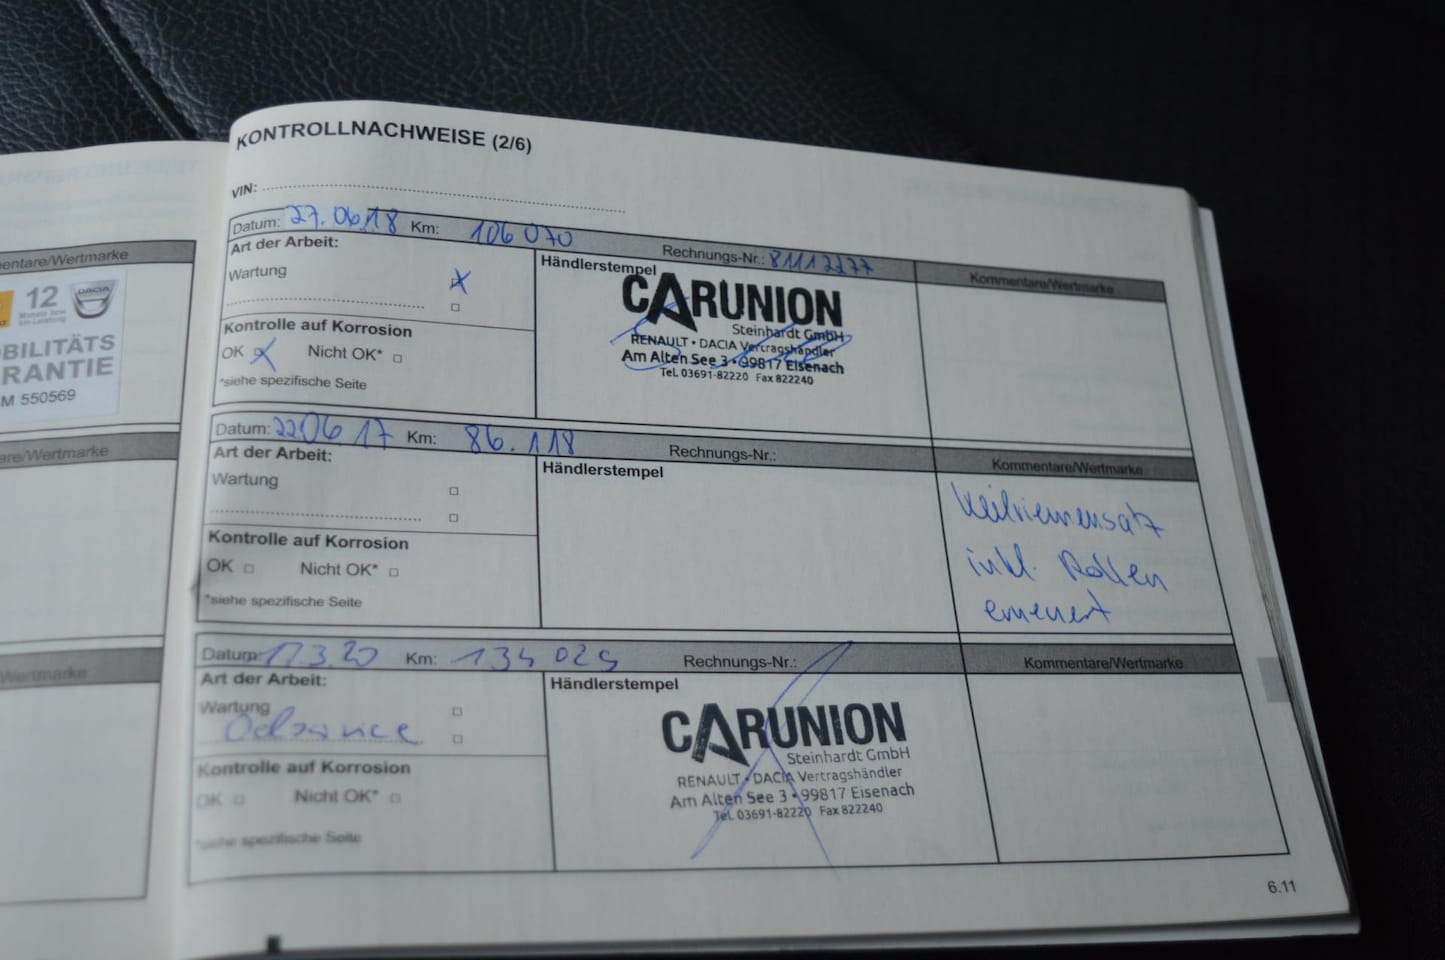 entare/Wertmarke
12
DACIA
BILITÄTS
RANTIE
M 550569
are/Wertmarke
Wertmarke
KONTROLLNACHWEISE (2/6)
VIN:
Datum: 27.06.18 Km: 106 070 Rechnungs-Nr.: 81112277
Kommentare/Wertmarke
Art der Arbeit:
Wartung
Kontrolle auf Korrosion
OK Nicht OK*
*siehe spezifische Seite
Händlerstempel
CARUNION
Steinhardt GmbH
RENAULT • DACIA Vertragshändler
Am Alten See 3 • 99817 Eisenach
Tel. 03691-82220 Fax 822240
Datum: 22.06.17 Km: 86.118 Rechnungs-Nr.:
Kommentare/Wertmarke
Art der Arbeit:
Wartung
Kontrolle auf Korrosion
OK Nicht OK*
*siehe spezifische Seite
Händlerstempel
Keilriemensatz
inkl. Rollen
erneuert
Datum: 17.3.20 Km: 134 025 Rechnungs-Nr.:
Kommentare/Wertmarke
Art der Arbeit:
Wartung
Ölservice
Kontrolle auf Korrosion
OK Nicht OK*
*siehe spezifische Seite
Händlerstempel
CARUNION
Steinhardt GmbH
RENAULT • DACIA Vertragshändler
Am Alten See 3 • 99817 Eisenach
Tel. 03691-82220 Fax 822240
6.11